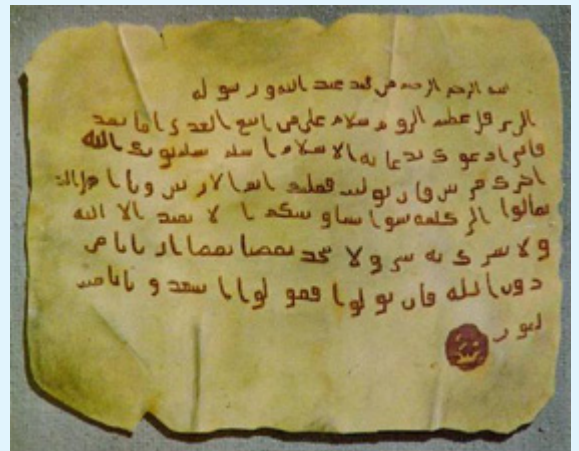 بسم الرحمن الرحيم من محمد عبد الله و رسوله
الى هرقل عظيم الروم سلام على من اتبع الهدى اما بعد
فانى ادعوك بدعاية الاسلام اسلم تسلم يوتك الله
اجرك مرتين فان توليت فعليك اثم الاريسين ويا اهل
تعالوا الى كلمة سوا بيننا وبينكم ا لا نعبد الا الله
ولا نشرك به شى ولا يتخذ بعضنا بعضا اربابا من
دون الله فان تولوا فقولوا اشهدو بانا مس
لمون